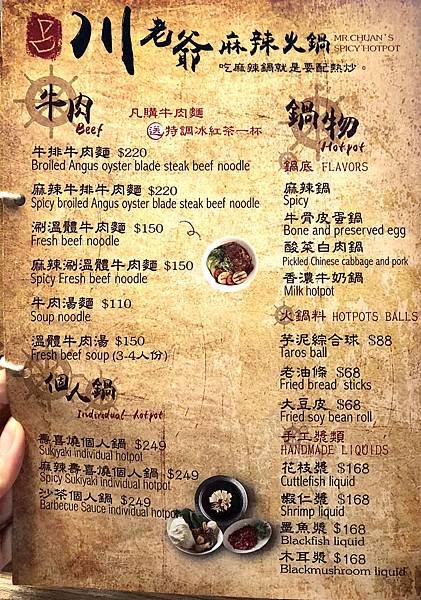 川老爺麻辣火鍋 MR.CHUAN`S
SPICY HOTPOT
吃麻辣鍋就是要配熱炒。
牛肉
Beef
凡購牛肉麵
送特調冰紅茶一杯
牛排牛肉麵 $220
Broiled Angus oyster blade steak beef noodle
麻辣牛排牛肉麵 $220
Spicy broiled Angus oyster blade steak beef noodle
涮溫體牛肉麵 $150
Fresh beef noodle
麻辣涮溫體牛肉麵 $150
Spicy Fresh beef noodle
牛肉湯麵 $110
Soup noodle
溫體牛肉湯 $150
Fresh beef soup (3-4人份)
個人鍋
Individual hotpot
壽喜燒個人鍋 $249
Sukiyaki individual hotpot
麻辣壽喜燒個人鍋 $249
Spicy Sukiyaki individual hotpot
沙茶個人鍋 $249
Barbecue Sauce individual hotpot
鍋物
Hotpot
鍋底 FLAVORS
麻辣鍋
Spicy
牛骨皮蛋鍋
Bone and preserved egg
酸菜白肉鍋
Pickled Chinese cabbage and pork
香濃牛奶鍋
Milk hotpot
火鍋料 HOTPOTS BALLS
芋泥綜合球 $88
Taros ball
老油條 $68
Fried bread sticks
大豆皮 $68
Fried soy bean roll
手工漿類
HANDMADE LIQUIDS
花枝漿 $168
Cuttlefish liquid
蝦仁漿 $168
Shrimp liquid
墨魚漿 $168
Blackfish liquid
木耳漿 $168
Blackmushroom liquid